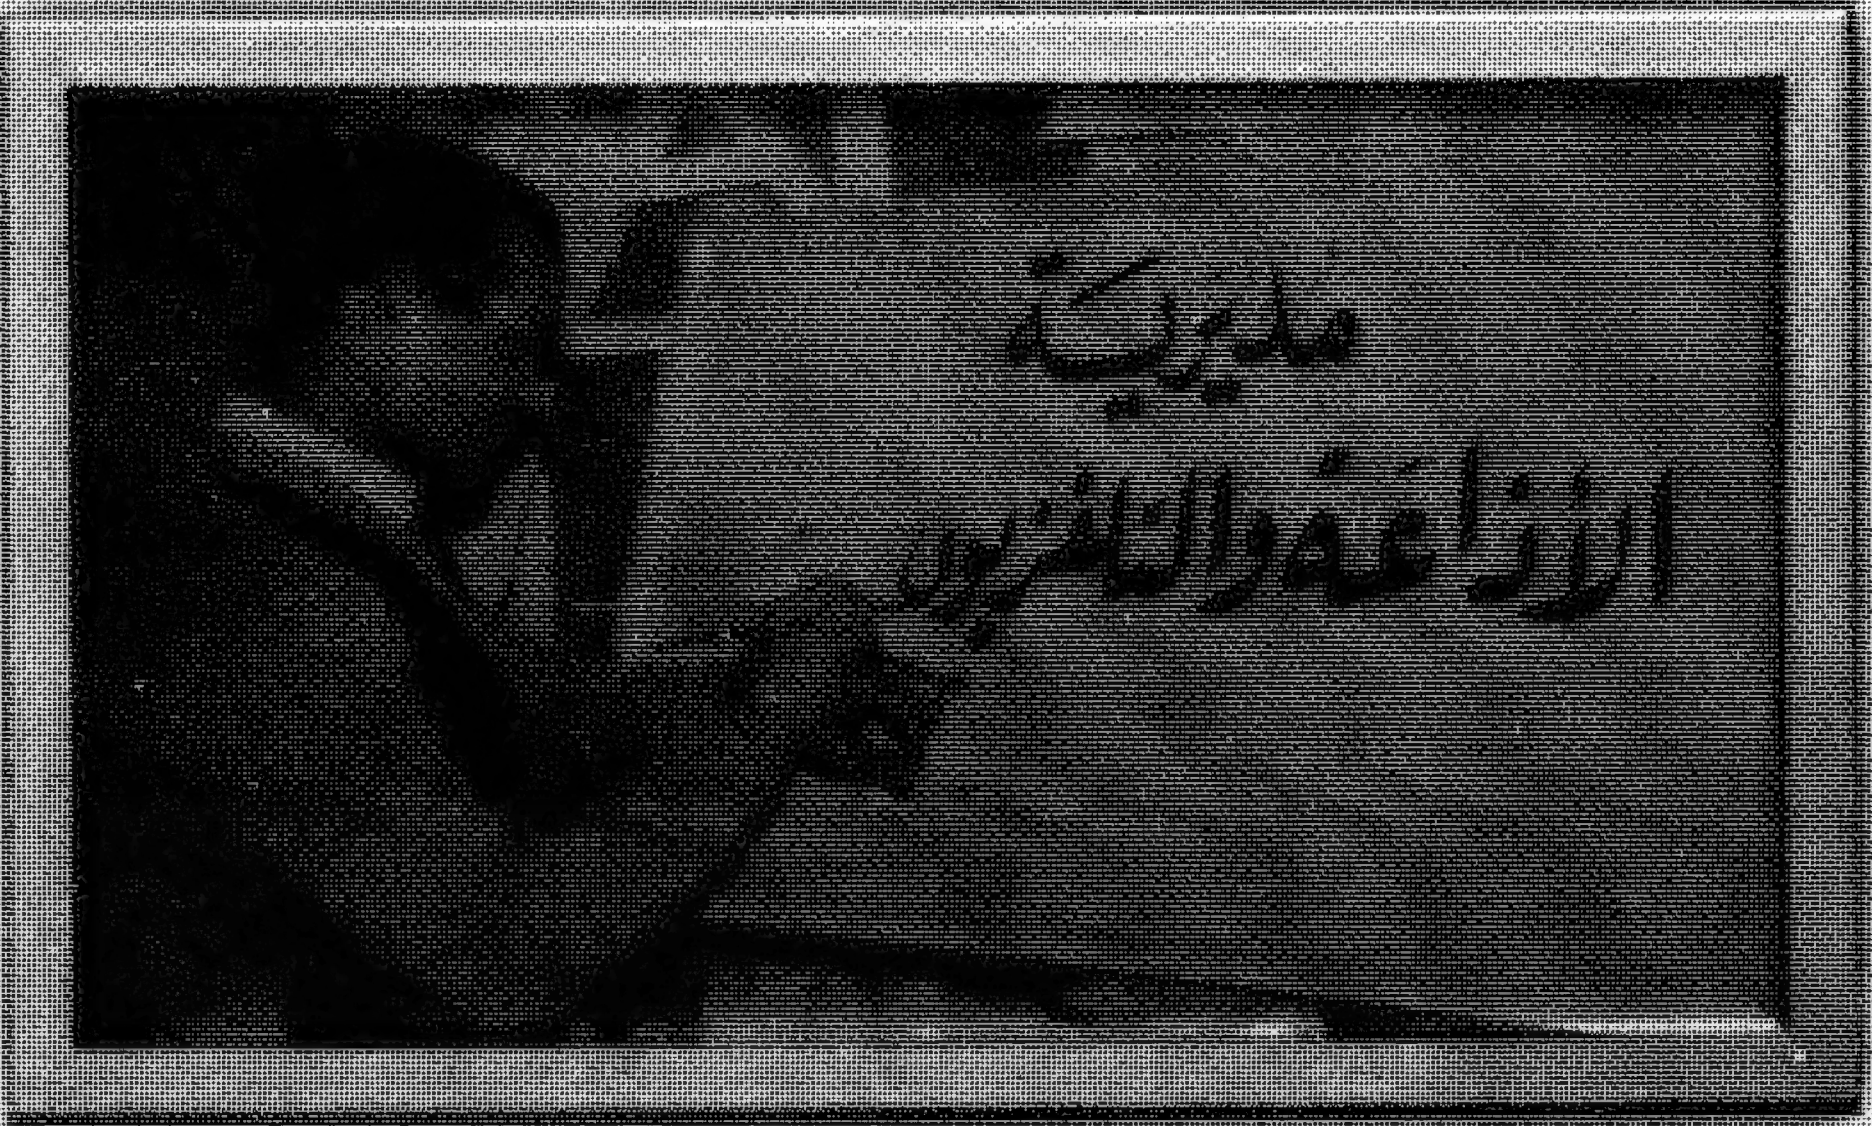 مديرية
الاذاعة والتلفزيون